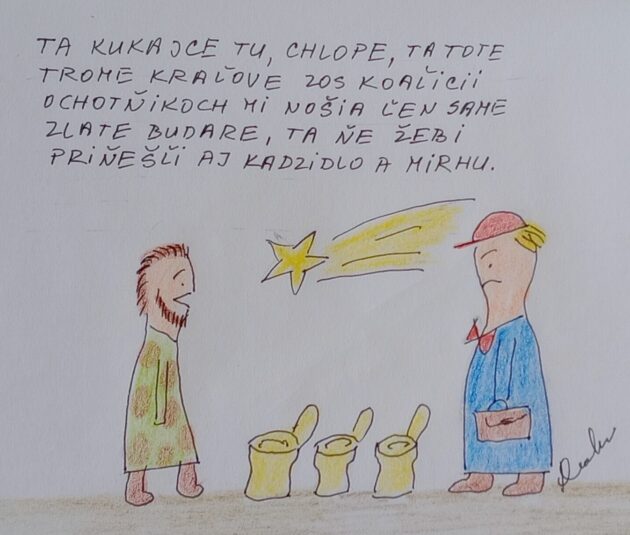 TA KUKAJCE TU, CHLOPE, TA TOTE
TROME KRAĽOVE ZOS KOALICII
OCHOTŇIKOCH MI NOŠIA ĽEN SAME
ZLATE BUDARE, TA ŇE ŽEBI
PRIŇEŠĽI AJ KADZIDLO A MIRHU.